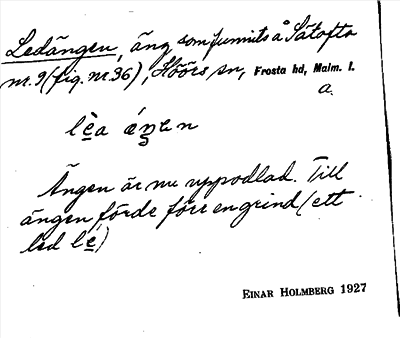 Ledängen, äng som funnits å Sätofta
nr. 9 (fig. nr. 36), Höörs sn, Frosta hd, Malm. l.
a.
lèa ǽŋen
Ängen är nu uppodlad. Till
ängen förde förr en grind (ett
led lé)
EINAR HOLMBERG 1927